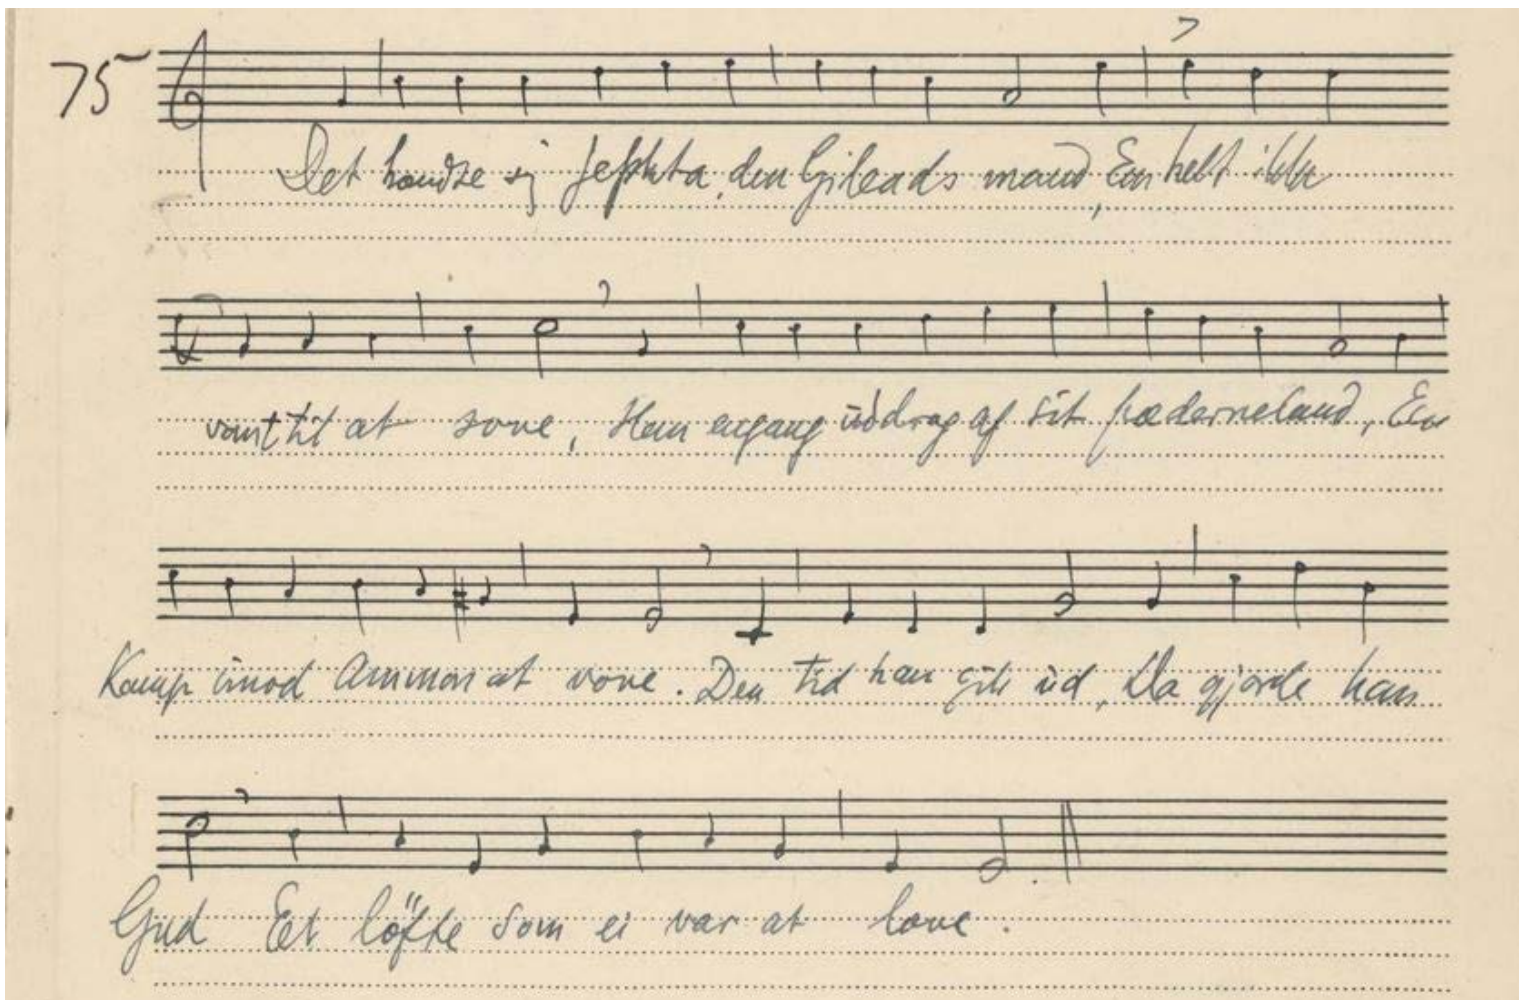 75
Det hændte sig Jephta, den Gileads mand, En helt ikke
vant til at sove, Han engang uddrog af sit fæderneland, En
Kamp imod Ammon at vove. Den tid han gik ud, Da gjorde han
Gud Eet löfte som ei var at love.